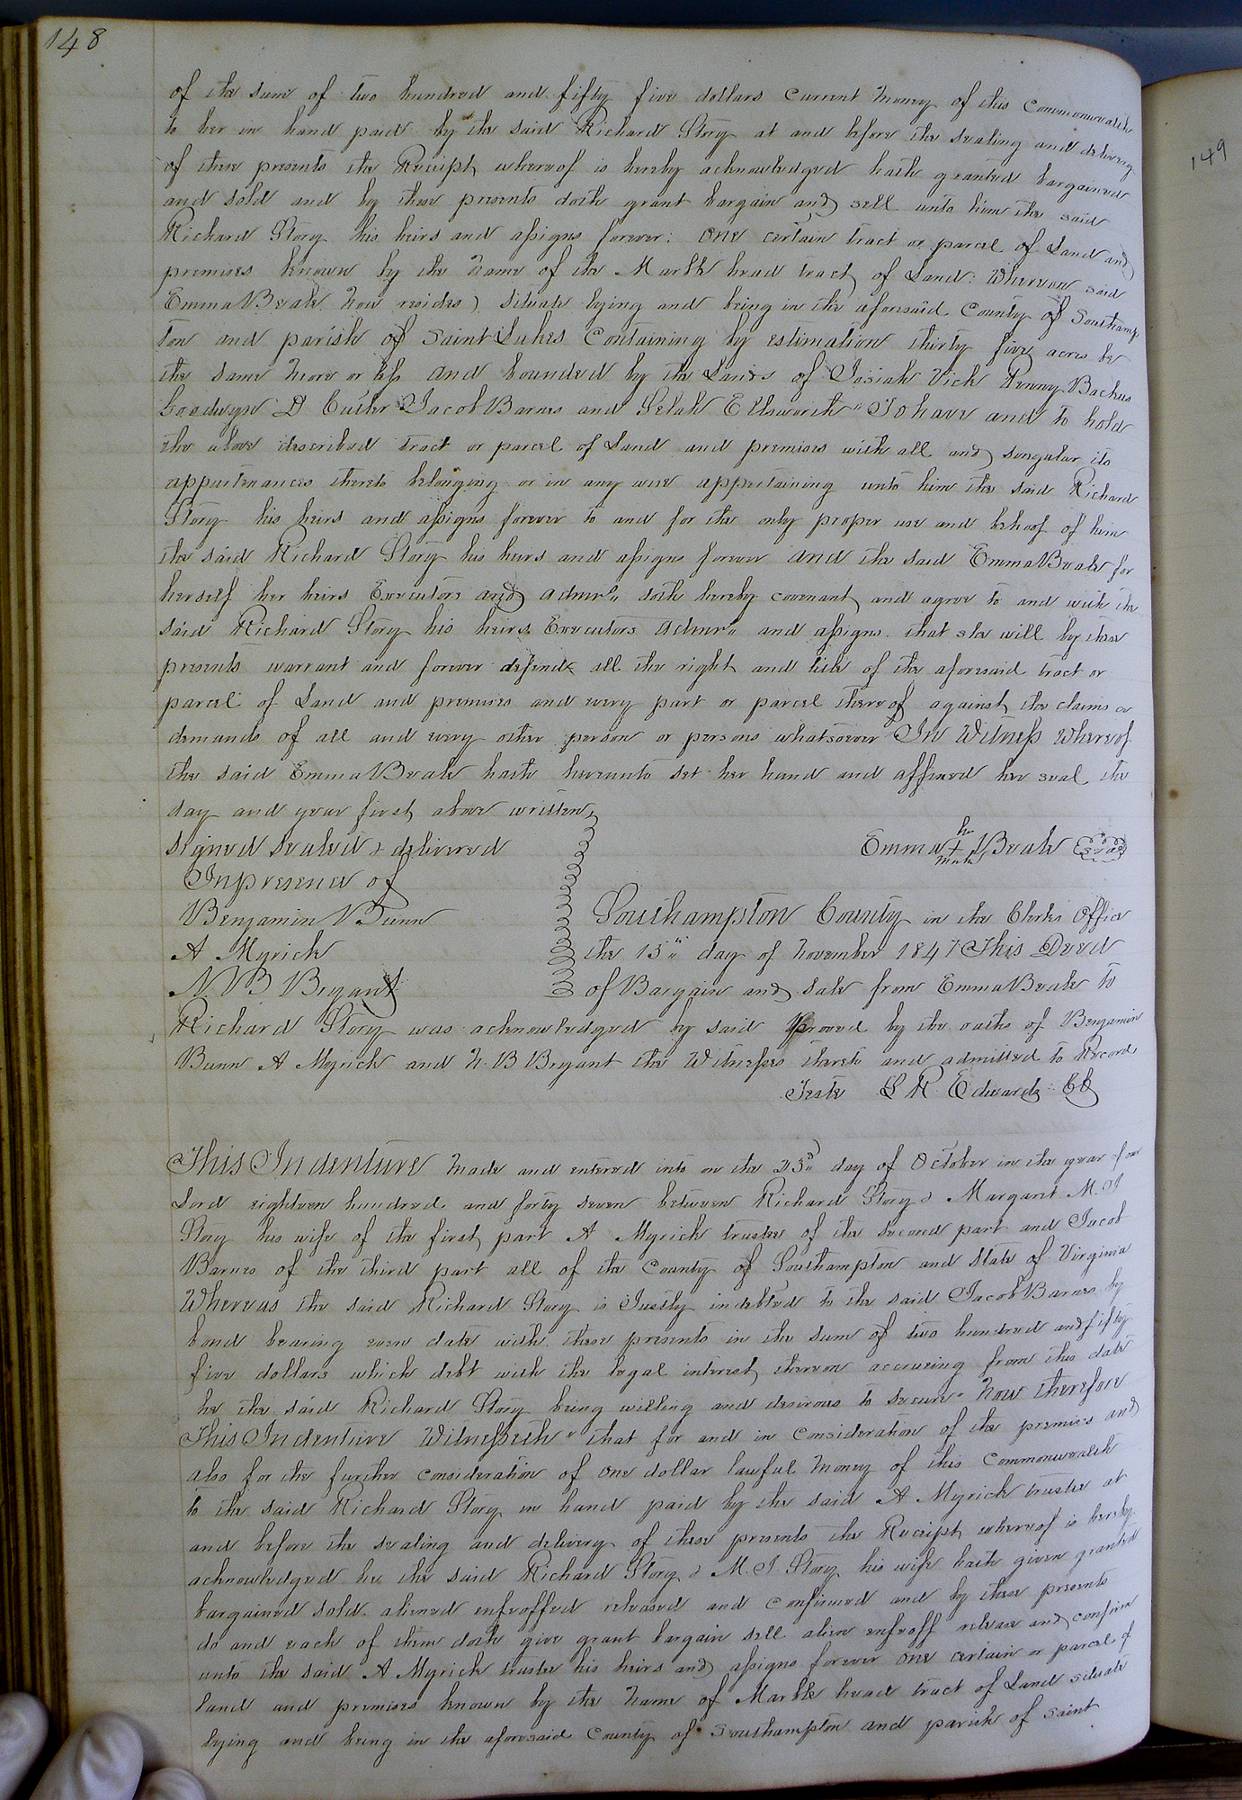 148
of the sum of two hundred and fifty five dollars current money of this Commonwealth
to her in hand paid by the said Richard Story at and before the sealing and delivery
of these presents the Receipt whereof is hereby acknowledged hath granted bargained
and sold and by these presents doth grant bargain and sell unto him the said
Richard Story his heirs and assigns forever: One certain tract or parcel of Land and
premises known by the name of the Marble head tract of Land: Whereon said
Emma Beale now resides) situate lying and being in the aforesaid County of Southamp
ton and parish of Saint Lukes Containing by estimation thirty five acres be
the same more or less and bounded by the Lands of Josiah Vick Penny Bachus
Goodwyn D Cutler Jacob Barnes and Selah Ellsworth" To have and to hold
the above described tract or parcel of Land and premises with all and singular its
appurtenances thereto belonging or in any wise appertaining unto him the said Richard
Story his heirs and assigns forever to and for the only proper use and behoof of him
the said Richard Story his heirs and assigns forever and the said Emma Beale for
herself her heirs Executors and admrs doth hereby covenant and agree to and with the
said Richard Story his heirs Executors admrs and assigns that she will by these
presents warrant and forever defend all the right and title of the aforesaid tract or
parcel of Land and premises and every part or parcel thereof against the claims or
demands of all and every other person or persons whatsoever In Witness whereof
the said Emma Beale hath hereunto set her hand and affixed her seal the
day and year first above written
Signed Sealed & delivered
In presence of
Benjamin Bunn
A Myrick
N B Bryant
Emma her + mark Beale Seal
Southampton County in the Clerks Office
the 15" day of November 1847 This Deed
of Bargain and sale from Emma Beale to
Richard Story was acknowledged by said proved by the oaths of Benjamin
Bunn A Myrick and N. B Bryant the Witnesses thereto and admitted to Record
Teste L R Edwards Clk
This Indenture made and entered into on the 23d day of October in the year of our
Lord eighteen hundred and forty seven between Richard Story & Margaret M. J
Story his wife of the first part A Myrick trustee of the second part and Jacob
Barnes of the third part all of the County of Southampton and State of Virginia
Whereas the said Richard Story is Justly indebted to the said Jacob Barnes by
bond bearing even date with these presents in the sum of two hundred and fifty
five dollars which debt with the legal interest thereon accrueing from this date
he the said Richard Story being willing and desirous to secure" Now therefore
This Indenture Witnesseth" that for and in consideration of the premises and
also for the further consideration of one dollar lawful money of this Commonwealth
to the said Richard Story in hand paid by the said A Myrick trustee at
and before the sealing and delivery of these presents the Receipt whereof is hereby
acknowledged he the said Richard Story & M. J. Story his wife hath given granted
bargained sold aliened enfeoffed released and confirmed and by these presents
do and each of them doth give grant bargain sell alien enfeoff release and confirm
unto the said A Myrick trustee his heirs and assigns forever one certain or parcel of
land and premises known by the name of Marble head tract of Land situate
lying and being in the aforesaid County of Southampton and parish of Saint
149